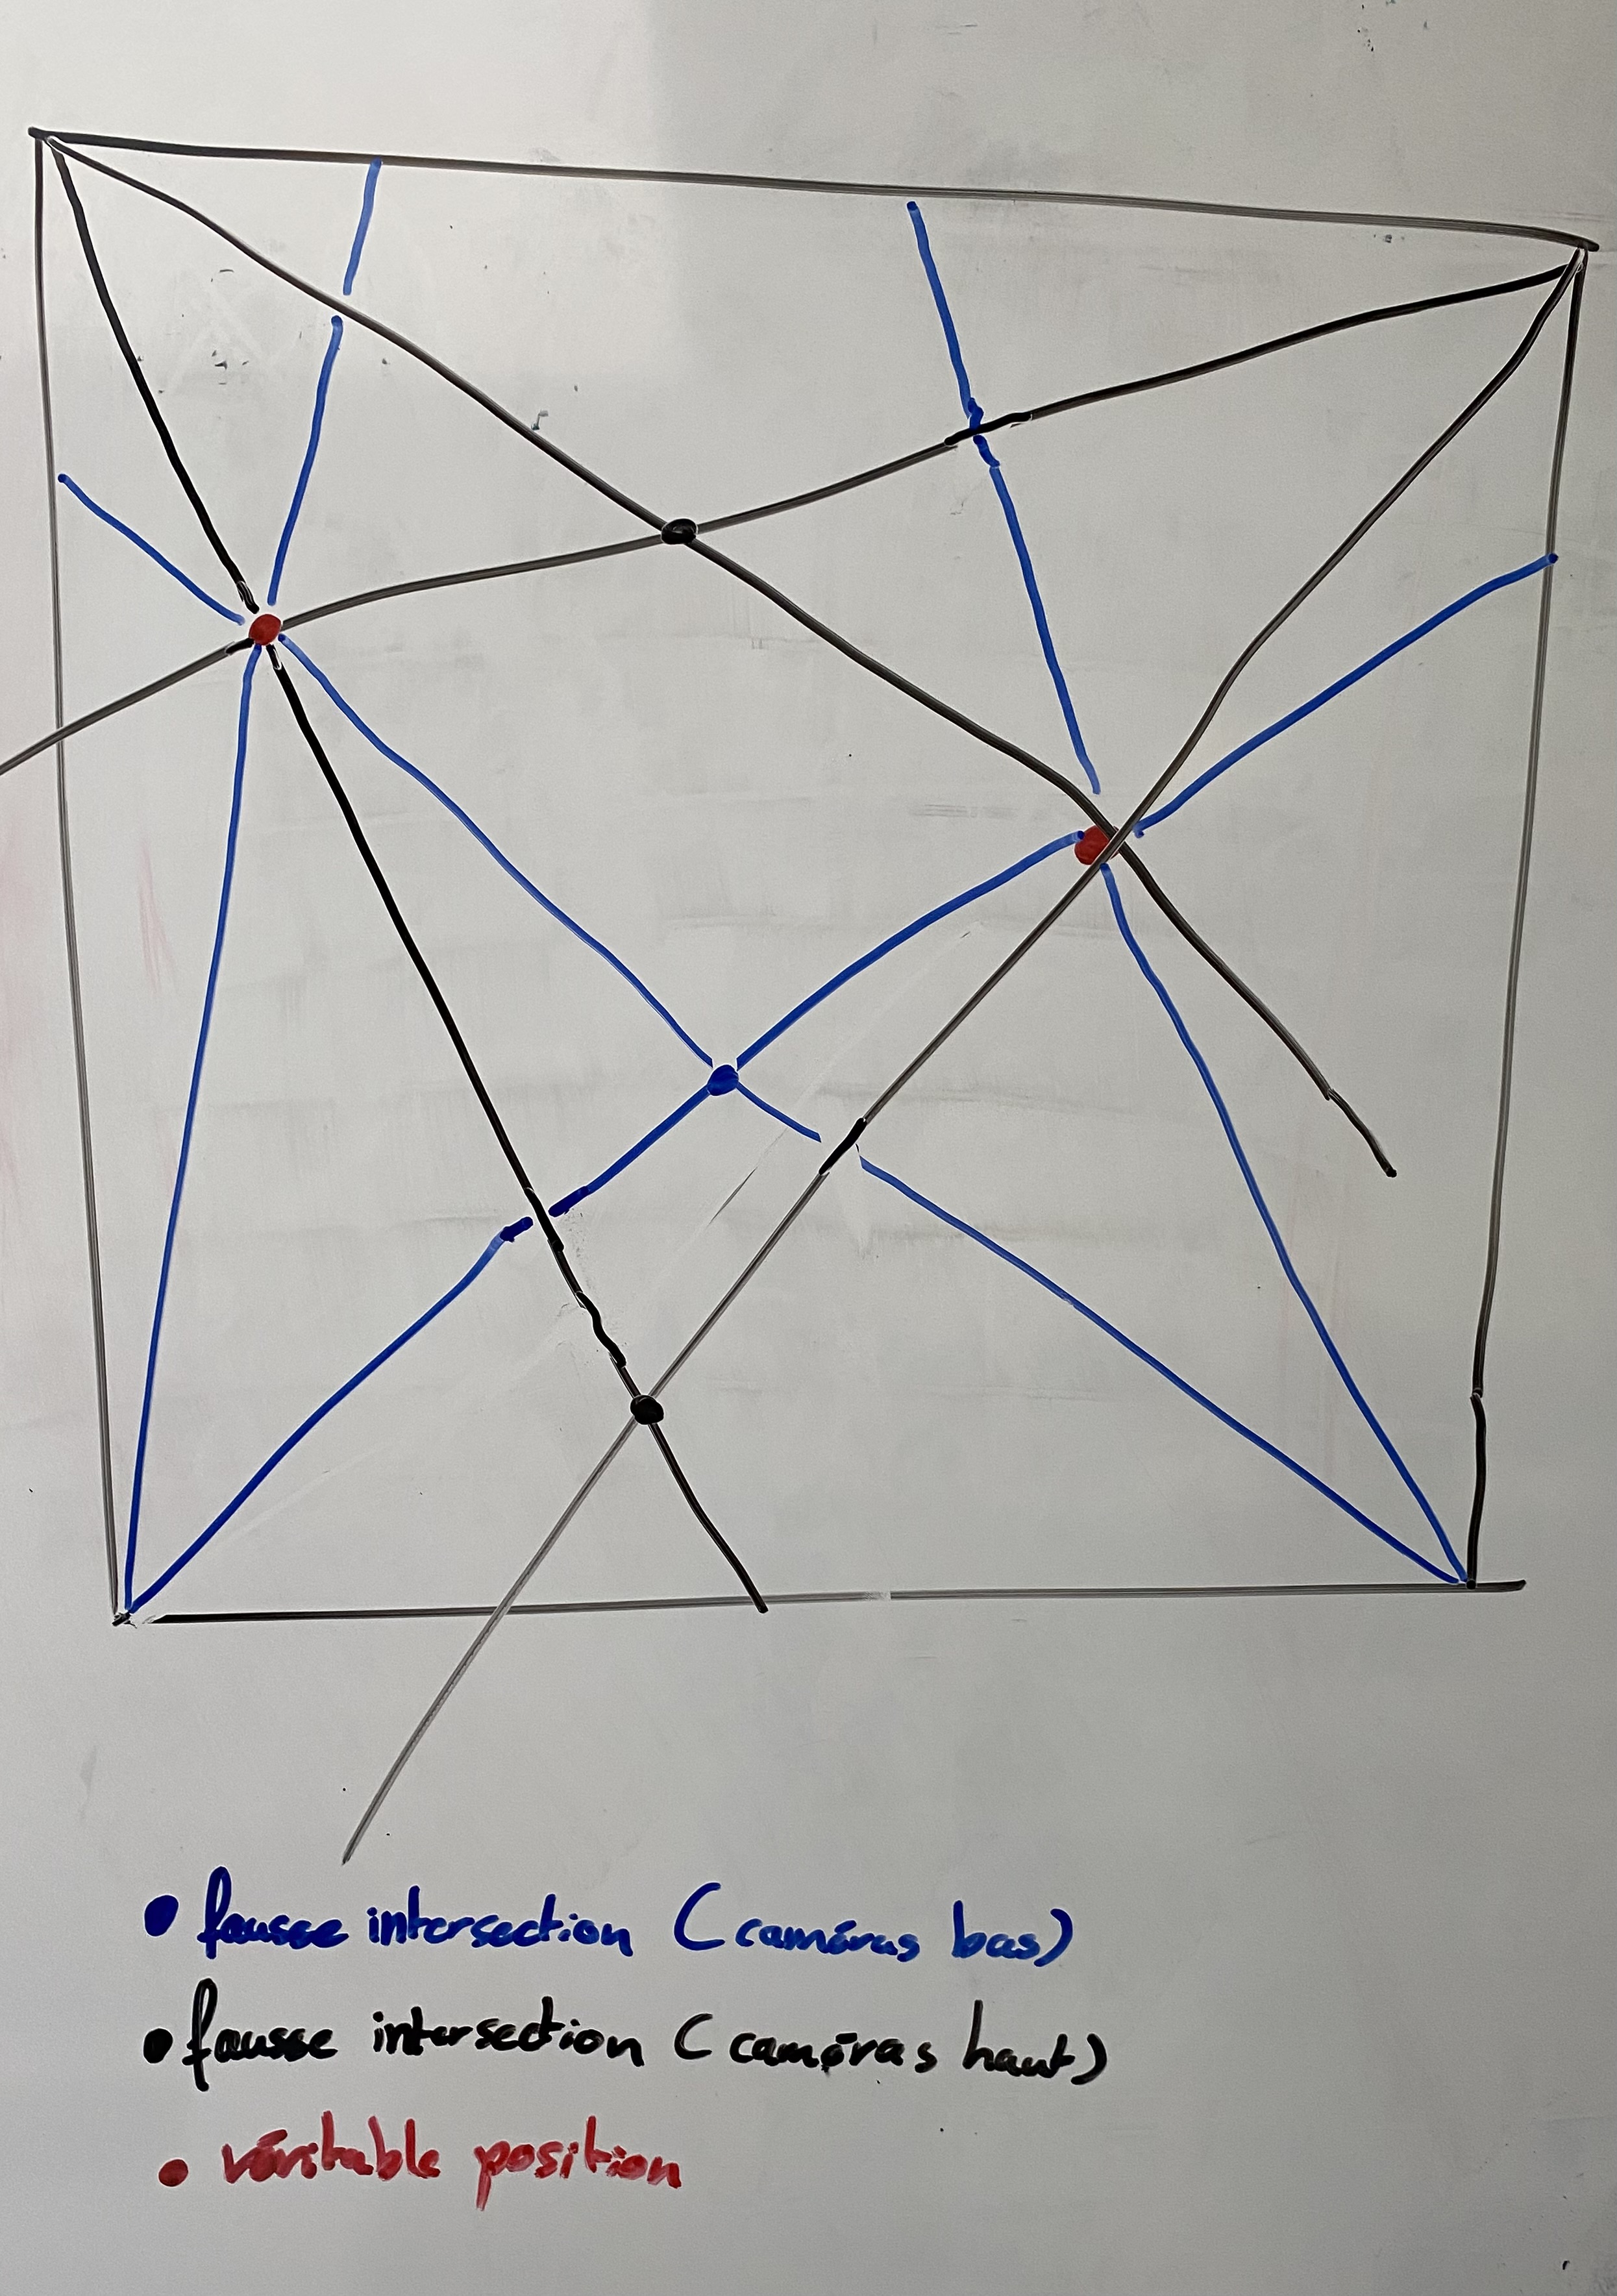 fausse intersection (caméras bas)
fausse intersection (caméras haut)
véritable position